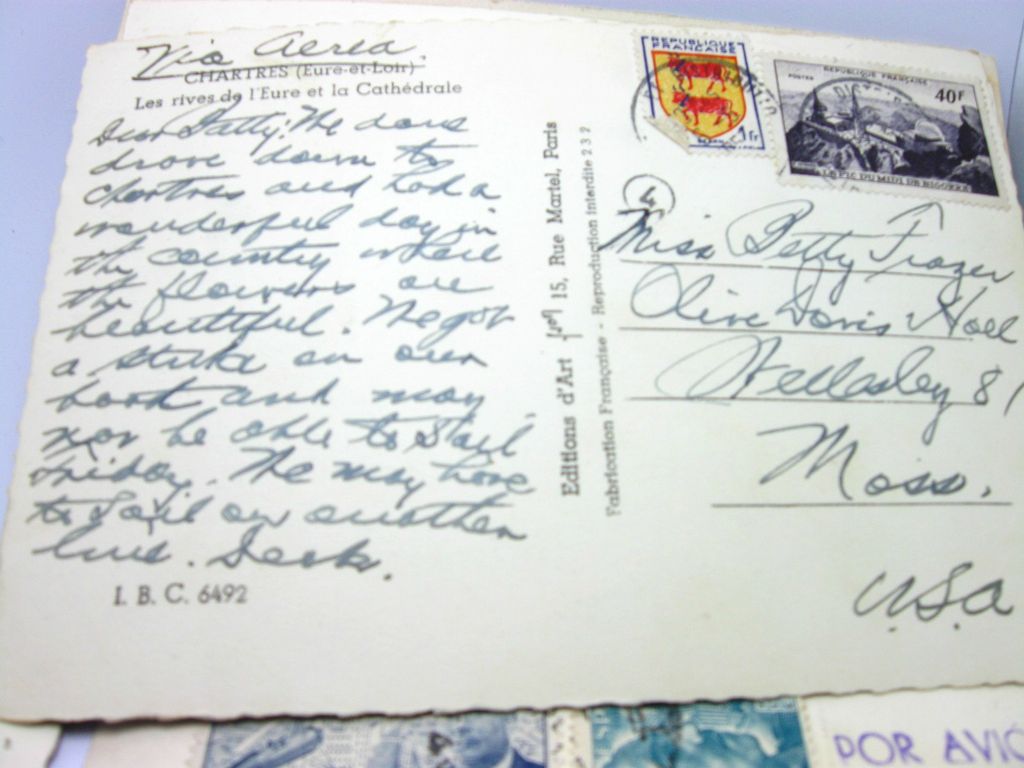 Via Aerea.
CHARTRES (Eure-et-Loir)
Les rives de l'Eure et la Cathédrale
Dear Betty: We have
drove down to
Chartres and had a
wonderful day in
the country where
the flowers are
beautiful. We got
a strike on our
boat and may
not be able to sail
Friday. We may have
to sail on another
line. Deck.
I. B. C. 6492
Editions d'Art 15, Rue Martel, Paris
Fabrication Française - Reproduction interdite 232
REPUBLIQUE
FRANÇAISE
1fr
POSTES
REPUBLIQUE FRANÇAISE
40F
LE PIC DU MIDI DE BIGORRE
4
Miss Betty Frazer
Olive Davis Hall
Wellesley 81
Mass.
U.S.A
POR AVIO